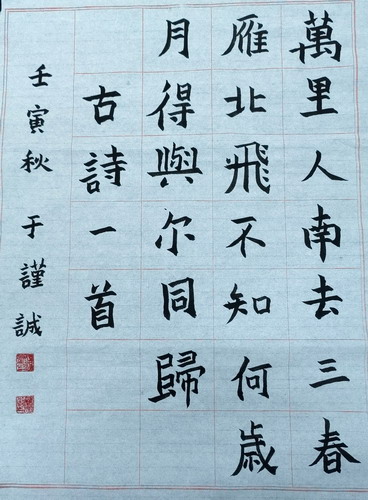 萬里人南去三春
雁北飛不知何歲
月得與尔同歸
古詩一首
壬寅秋 于謹誠